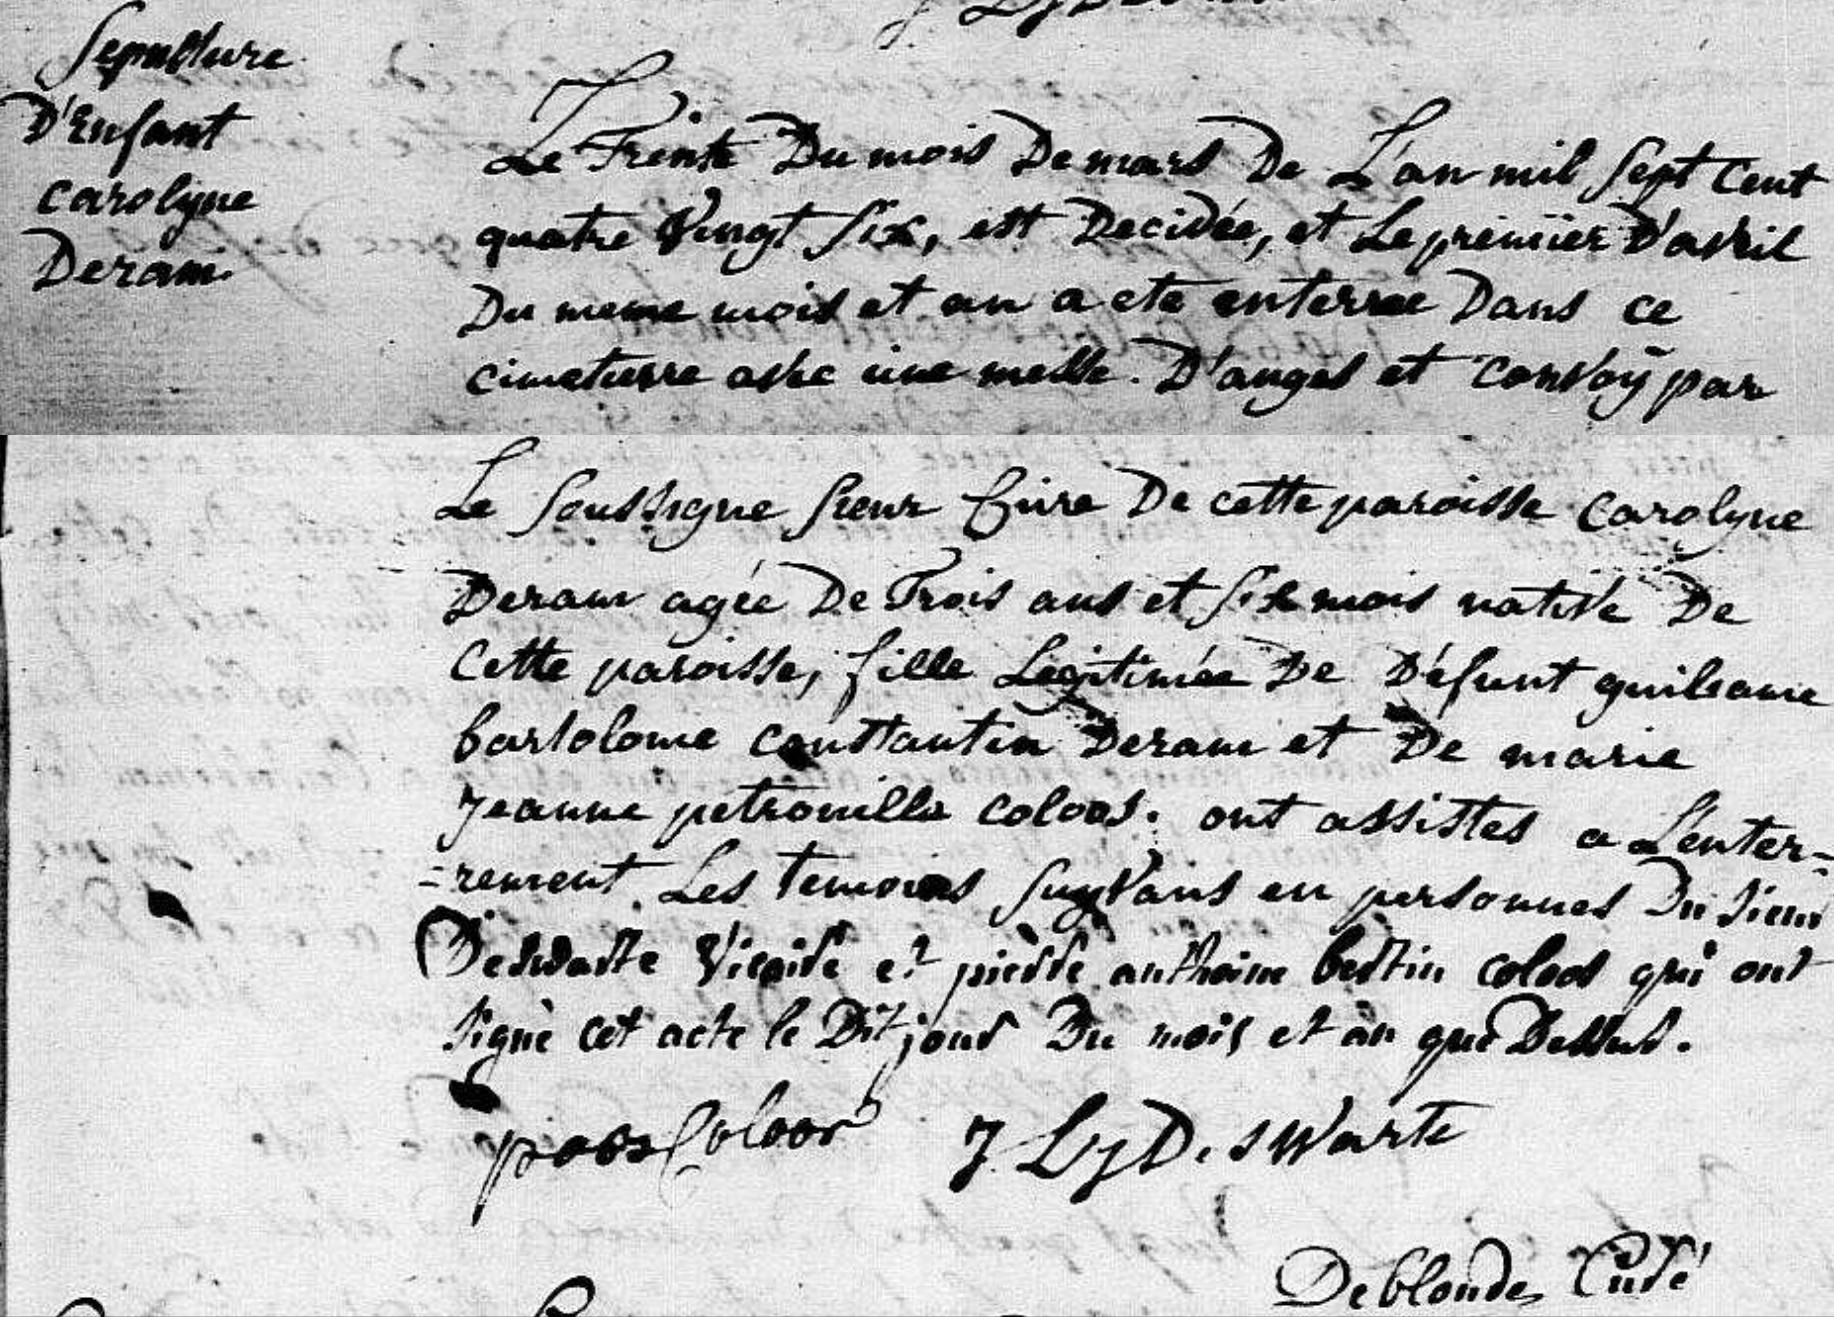 Sepulture
D'Enfant
Carolyne
Deram
Le Trente Du mois De mars De L'an mil Sept Cent
quatre Vingt Six, est Decidée, et Le premiier D'avril
Du meme mois et an a ete enterree Dans ce
cimetierre avec une messe. D'anges et Convoÿ par
Le Soussigne Sieur Cure De cette paroisse Carolyne
Deram agée De Trois ans et Six mois native De
Cette paroisse, fille Legitimée De Défunt guilame
bartolome constantin Deram et De marie
Jeanne petronille coloos. ont assistes a L'enter-
-rement Les temoins Suyvans en personnes Du Sieur
Deswarte Vicaire et pierre anthoine bertin coloos qui ont
signé cet acte le Dit jour Du mois et an que Dessus.
Coloos J L J Deswarte
Deblonde Curé